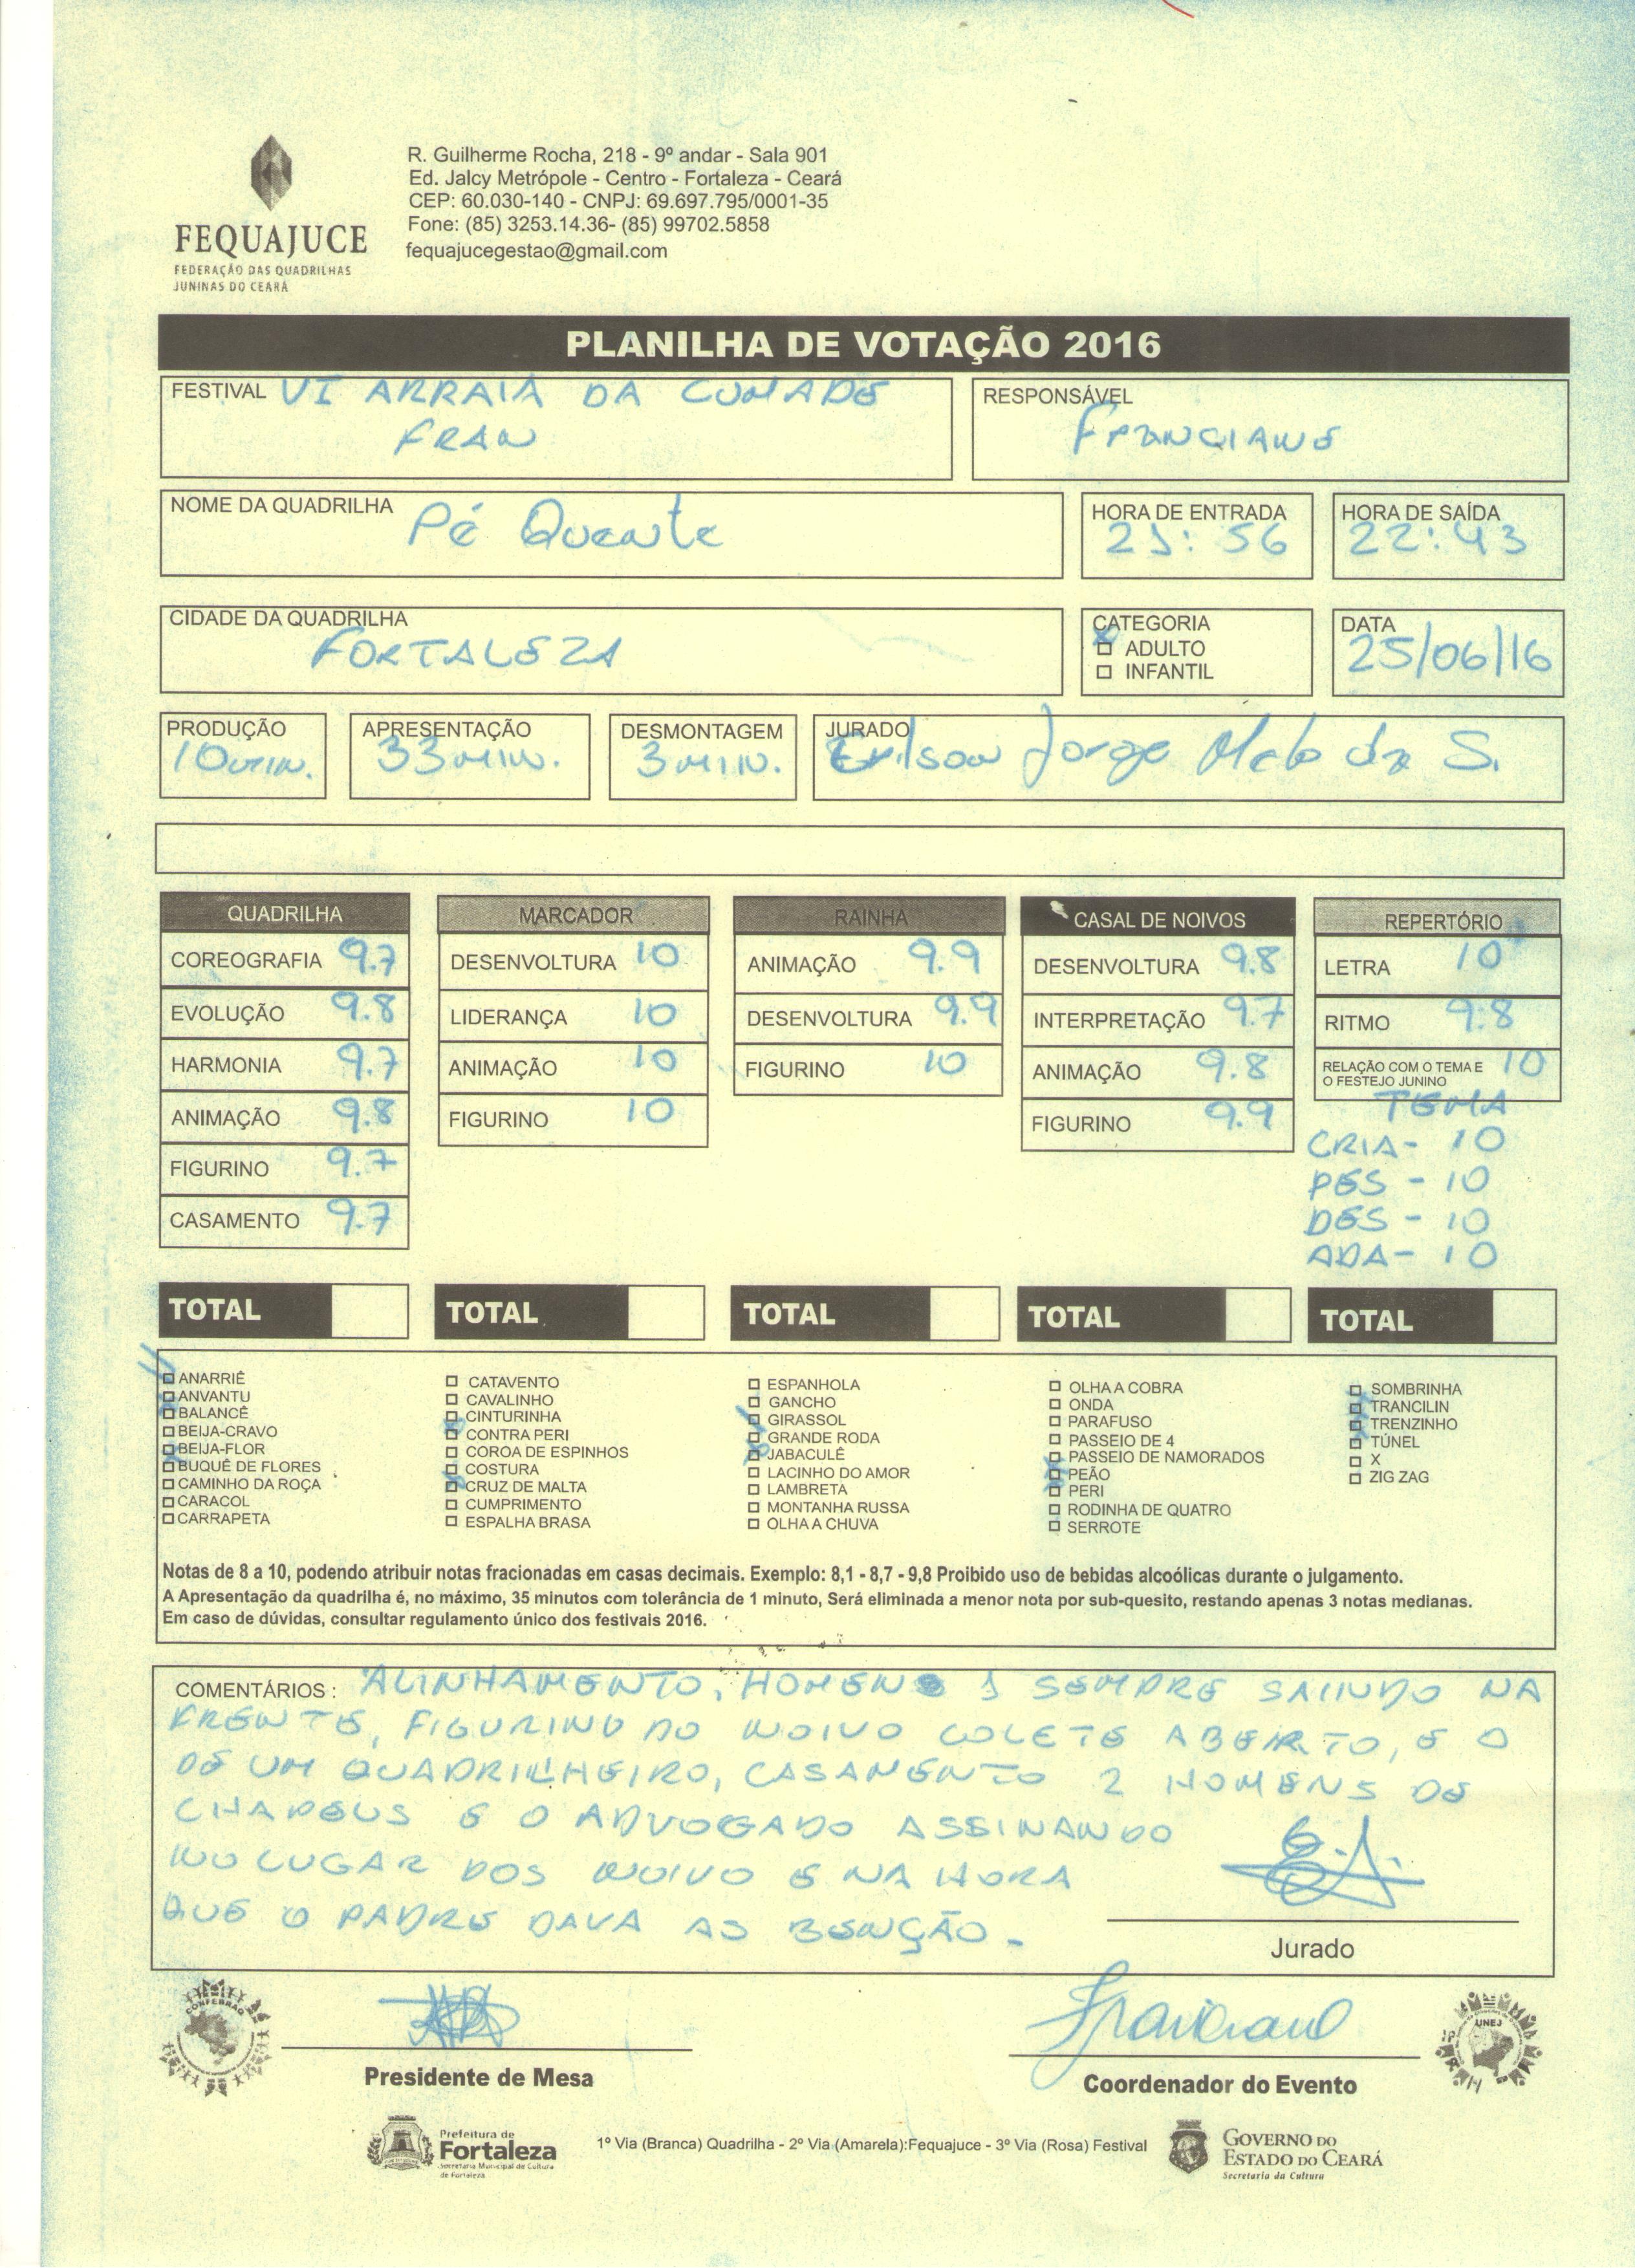 R. Guilherme Rocha, 218 - 9º andar - Sala 901
Ed. Jalcy Metrópole - Centro - Fortaleza - Ceará
CEP: 60.030-140 - CNPJ: 69.697.795/0001-35
Fone: (85) 3253.14.36- (85) 99702.5858
fequajucegestao@gmail.com
FEQUAJUCE
FEDERAÇÃO DAS QUADRILHAS
JUNINAS DO CEARÁ
PLANILHA DE VOTAÇÃO 2016
FESTIVAL VI ARRAIA DA CUMADE
FRAN
RESPONSÁVEL
FRANCIANE
NOME DA QUADRILHA Pé Quente
HORA DE ENTRADA
21:56
HORA DE SAÍDA
22:43
CIDADE DA QUADRILHA
FORTALEZA
CATEGORIA
ADULTO
INFANTIL
DATA
25/06/16
PRODUÇÃO
10 min.
APRESENTAÇÃO
33 min.
DESMONTAGEM
3 min.
JURADO
Erilson Jorge Melo da S.
QUADRILHA
COREOGRAFIA 9.7
EVOLUÇÃO 9.8
HARMONIA 9.7
ANIMAÇÃO 9.8
FIGURINO 9.7
CASAMENTO 9.7
MARCADOR
DESENVOLTURA 10
LIDERANÇA 10
ANIMAÇÃO 10
FIGURINO 10
RAINHA
ANIMAÇÃO 9.9
DESENVOLTURA 9.9
FIGURINO 10
CASAL DE NOIVOS
DESENVOLTURA 9.8
INTERPRETAÇÃO 9.7
ANIMAÇÃO 9.8
FIGURINO 9.9
REPERTÓRIO
LETRA 10
RITMO 9.8
RELAÇÃO COM O TEMA E
O FESTEJO JUNINO 10
TEMA
CRIA- 10
PES - 10
DES - 10
ADA- 10
TOTAL
TOTAL
TOTAL
TOTAL
TOTAL
ANARRIÊ
ANVANTU
BALANCÊ
BEIJA-CRAVO
BEIJA-FLOR
BUQUÊ DE FLORES
CAMINHO DA ROÇA
CARACOL
CARRAPETA
CATAVENTO
CAVALINHO
CINTURINHA
CONTRA PERI
COROA DE ESPINHOS
COSTURA
CRUZ DE MALTA
CUMPRIMENTO
ESPALHA BRASA
ESPANHOLA
GANCHO
GIRASSOL
GRANDE RODA
JABACULÊ
LACINHO DO AMOR
LAMBRETA
MONTANHA RUSSA
OLHA A CHUVA
OLHA A COBRA
ONDA
PARAFUSO
PASSEIO DE 4
PASSEIO DE NAMORADOS
PEÃO
PERI
RODINHA DE QUATRO
SERROTE
SOMBRINHA
TRANCILIN
TRENZINHO
TÚNEL
X
ZIG ZAG
Notas de 8 a 10, podendo atribuir notas fracionadas em casas decimais. Exemplo: 8,1 - 8,7 - 9,8 Proibido uso de bebidas alcoólicas durante o julgamento.
A Apresentação da quadrilha é, no máximo, 35 minutos com tolerância de 1 minuto, Será eliminada a menor nota por sub-quesito, restando apenas 3 notas medianas.
Em caso de dúvidas, consultar regulamento único dos festivais 2016.
COMENTÁRIOS: ALINHAMENTO, HOMEN 1 SEMPRE SAINDO NA
FRENTE, FIGURINO DO NOIVO COLETE ABERTO, E O
DE UM QUADRILHEIRO, CASAMENTO 2 HOMENS DE
CHAPEUS E O ADVOGADO ASSINANDO
NO LUGAR DOS NOIVO E NA HORA
QUE O PADRE DAVA AS BENÇÃO.
Jurado
CONFEBRAQ
Franciane
UNEJ
Presidente de Mesa
Coordenador do Evento
Prefeitura de
Fortaleza
Secretaria Municipal de Cultura
de Fortaleza
1º Via (Branca) Quadrilha - 2º Via (Amarela):Fequajuce - 3º Via (Rosa) Festival
GOVERNO DO
ESTADO DO CEARÁ
Secretaria da Cultura